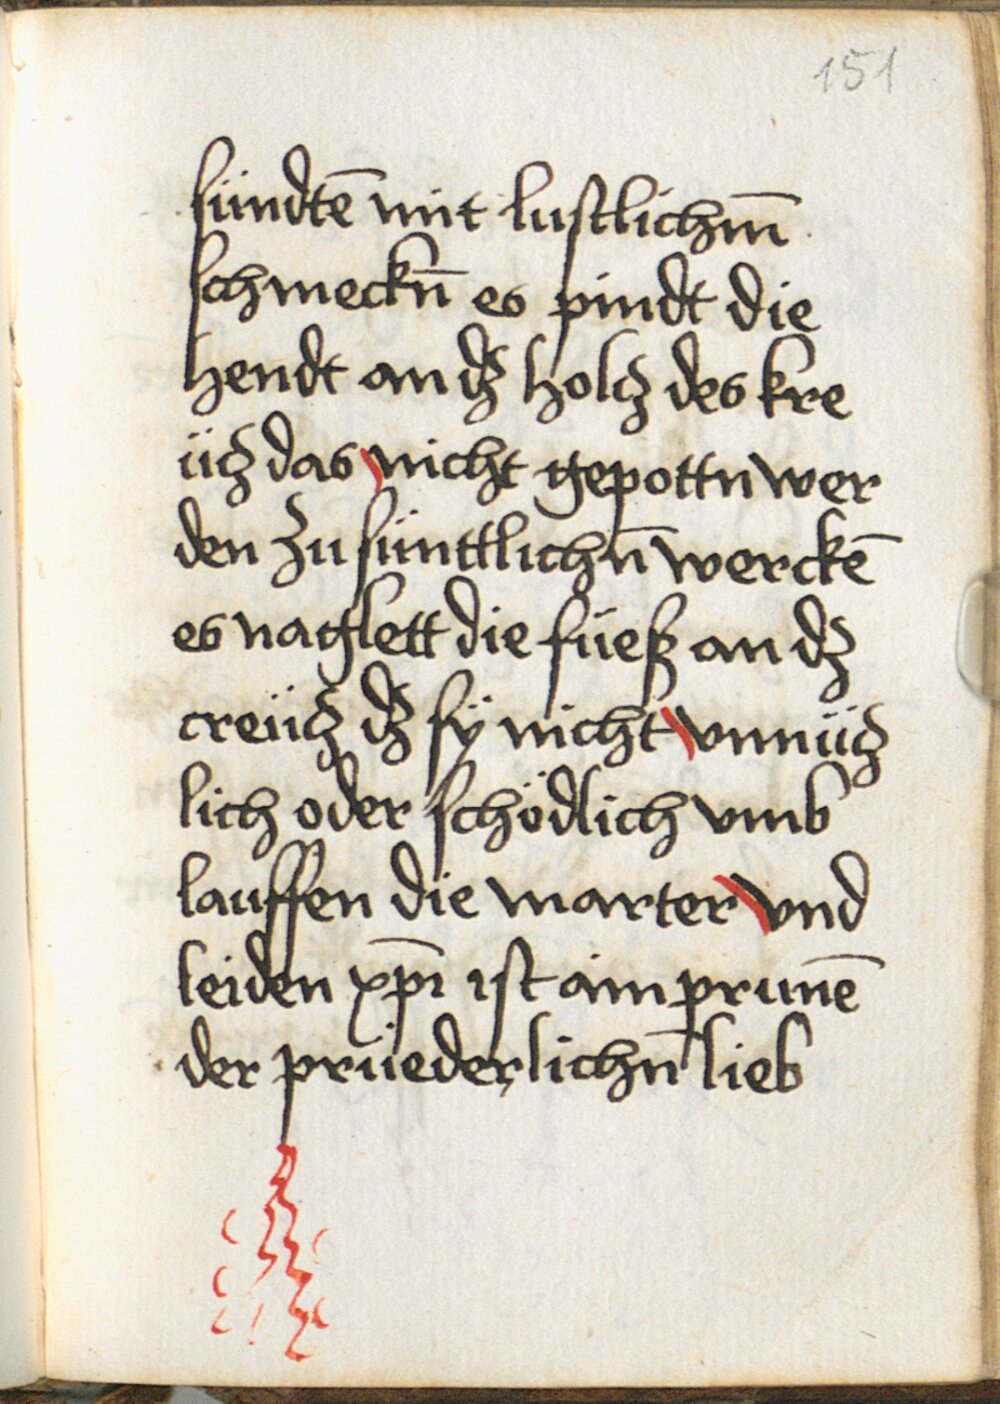 151
sündtē mit lustlichm̄
schmeckn̄ es pindt die
hendt an dʒ holcʒ des kre
ücʒ das nicht gepottn wer
den zu sünttlichn̄ werckē
es naglett die füeß an dʒ
creücʒ dʒ sÿ nicht vnnücʒ
lich oder schödlich vmb
lauffen die marter vnd
leiden xp̄i ist ain prunē
der prüederlichn̄ lieb